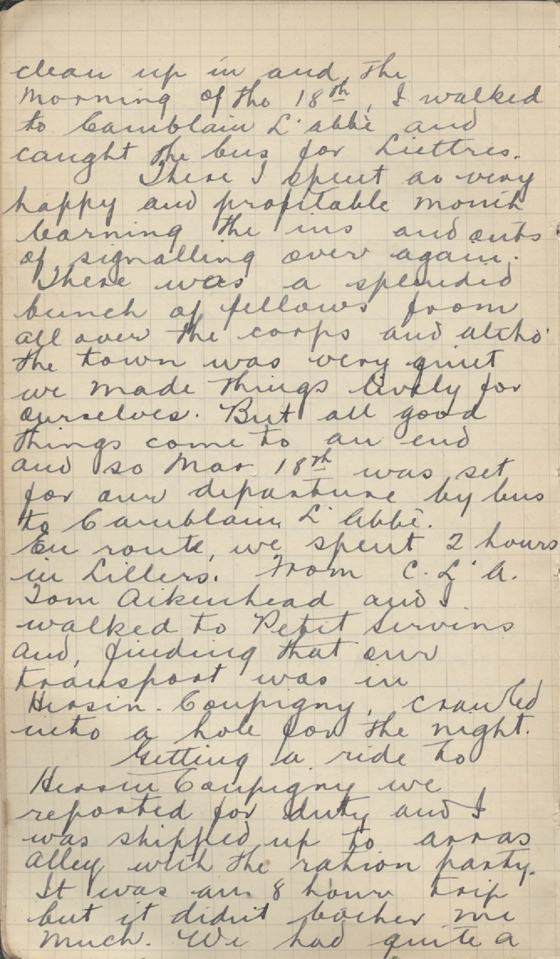 clean up in and, the
morning of the 18th, I walked
to Camblain L'abbè and
caught the bus for Liettres.
There I spent a very
happy and profitable month
learning the ins and outs
of signalling over again.
There was a splendid
bunch of fellows from
all over the corps and altho'
the town was very quiet
we made things lively for
ourselves. But all good
things come to an end
and so Mar 18th was set
for our departure by bus
to Camblain L'Abbè.
En route, we spent 2 hours
in Lillers. From C. L'A.
Tom Aikenhead and I
walked to Petit Servins
and, finding that our
transport was in
Hersin-Coupigny, crawled
into a hole for the night.
Getting a ride to
Hersin Coupigny we
reported for duty and I
was shipped up to arras
alley with the ration party.
It was an 8 hour trip
but it didn't bother me
much. We had quite a